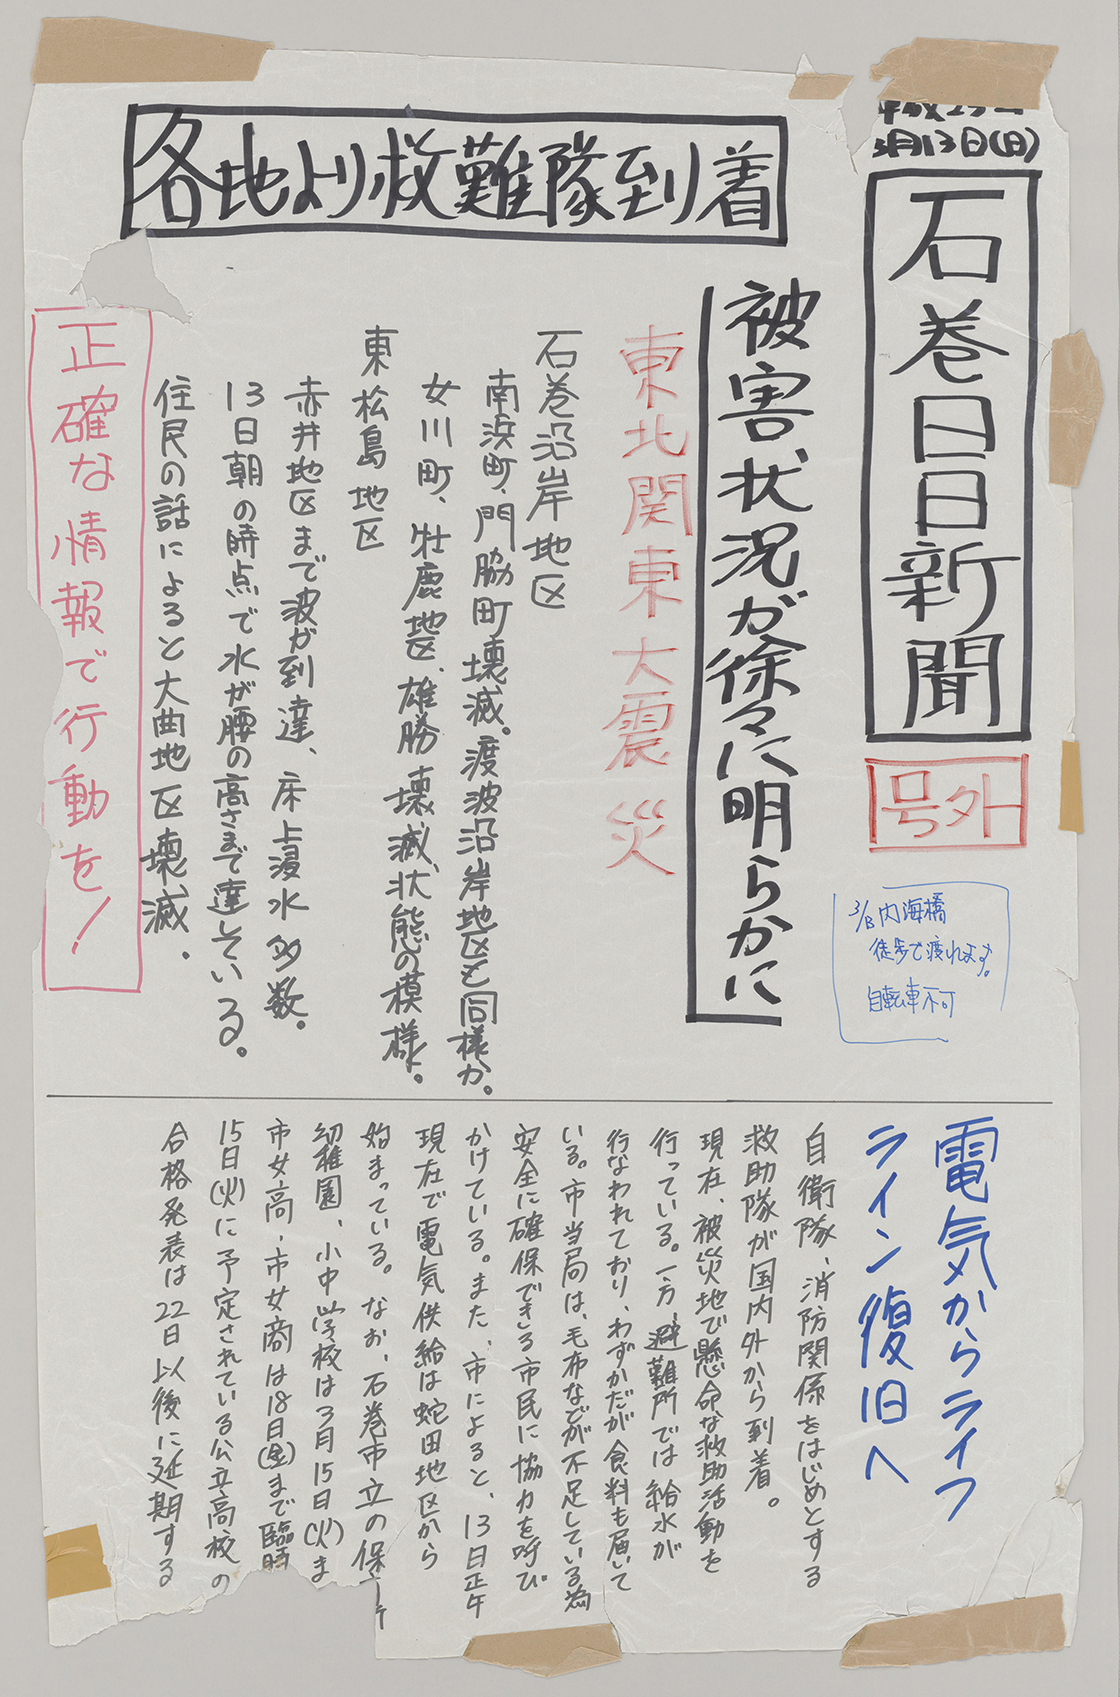 平成23年
3月13日(日)
石巻日日新聞
号外
3/13 内海橋
徒歩で渡れます。
自転車不可
各地より救難隊到着
被害状況が徐々に明らかに
東北関東大震災
石巻沿岸地区
南浜町、門脇町壊滅。渡波沿岸地区も同様か。
女川町、牡鹿地区、雄勝壊滅状態の模様。
東松島地区
赤井地区まで波が到達、床上浸水多数。
13日朝の時点で水が腰の高さまで達している。
住民の話によると大曲地区壊滅.
正確な情報で行動を!
電気からライフ
ライン復旧へ
自衛隊、消防関係をはじめとする
救助隊が国内外から到着。
現在、被災地で懸命な救助活動を
行っている。一方、避難所では給水が
行なわれており、わずかだが食料も届いて
いる。市当局は、毛布などが不足している為
安全に確保できる市民に協力を呼び
かけている。また、市によると、13日正午
現在で電気供給は蛇田地区から
始まっている。なお、石巻市立の保
幼稚園、小中学校は3月15日(火)ま
市女高、市女商は18日(金)まで臨時
15日(火)に予定されている公立高校の
合格発表は22日以後に延期する